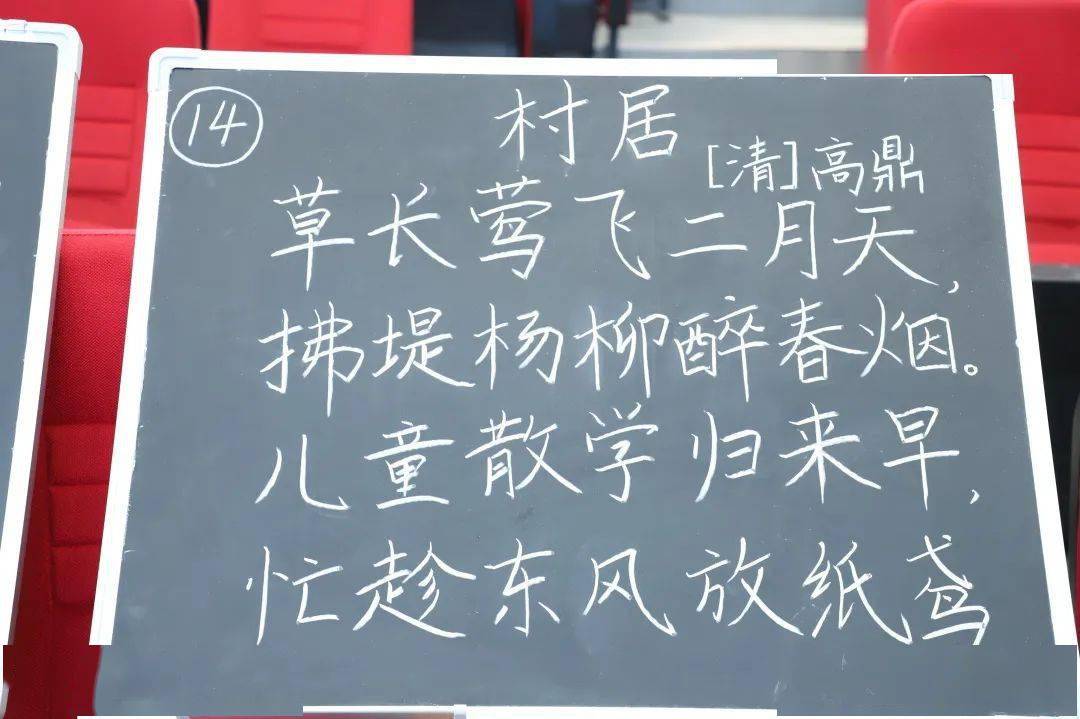 14
村居
[清]高鼎
草长莺飞二月天,
拂堤杨柳醉春烟。
儿童散学归来早,
忙趁东风放纸鸢